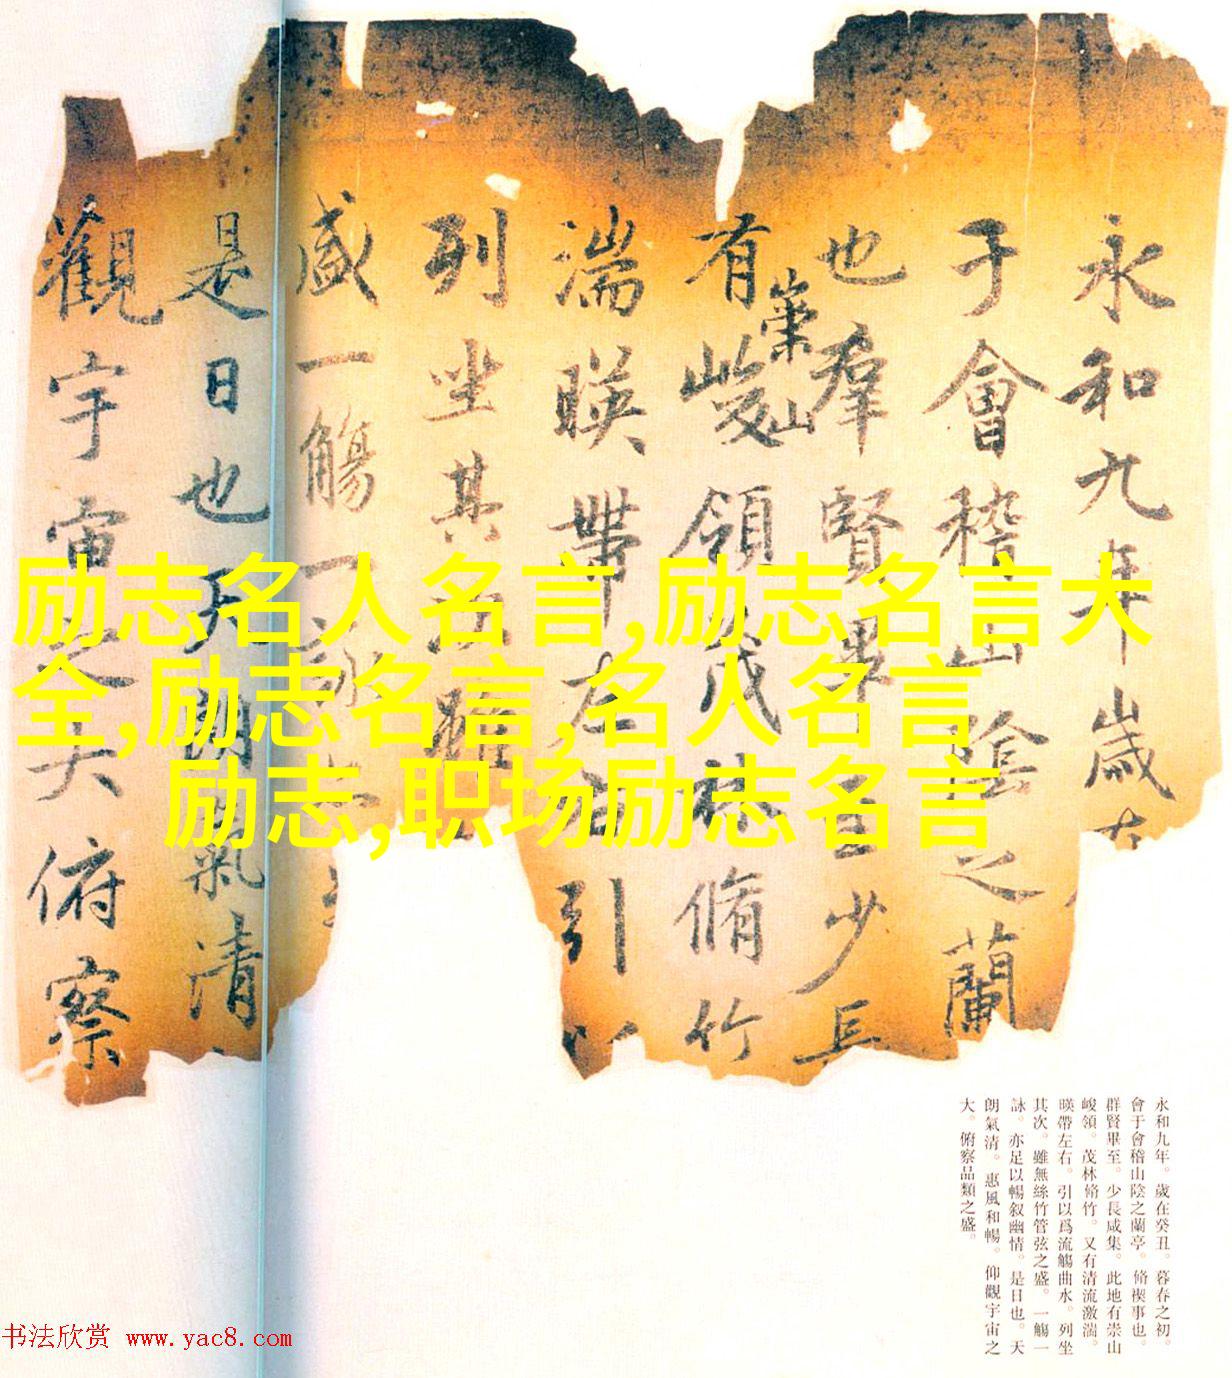 永和九年歲在
于會稽山陰之蘭
也羣賢畢至少長
有崇山
峻領茂林脩竹
湍暎帶左右引以
列坐其次雖
盛一觴一詠
是日也天朗氣清
觀宇宙之大俯察
励志名人名言,励志名言大
全,励志名言,名人名言
励志,职场励志名言
永和九年。歲在癸丑。暮春之初。
會于會稽山陰之蘭亭。脩禊事也。
群賢畢至。少長咸集。此地有崇山
峻領。茂林脩竹。又有清流激湍。
暎帶左右。引以爲流觴曲水。列坐
其次。雖無絲竹管弦之盛。一觴一
詠。亦足以暢叙幽情。是日也。天
朗氣清。惠風和暢。仰觀宇宙之
大。俯察品類之盛。
书法欣赏 www.yac8.com